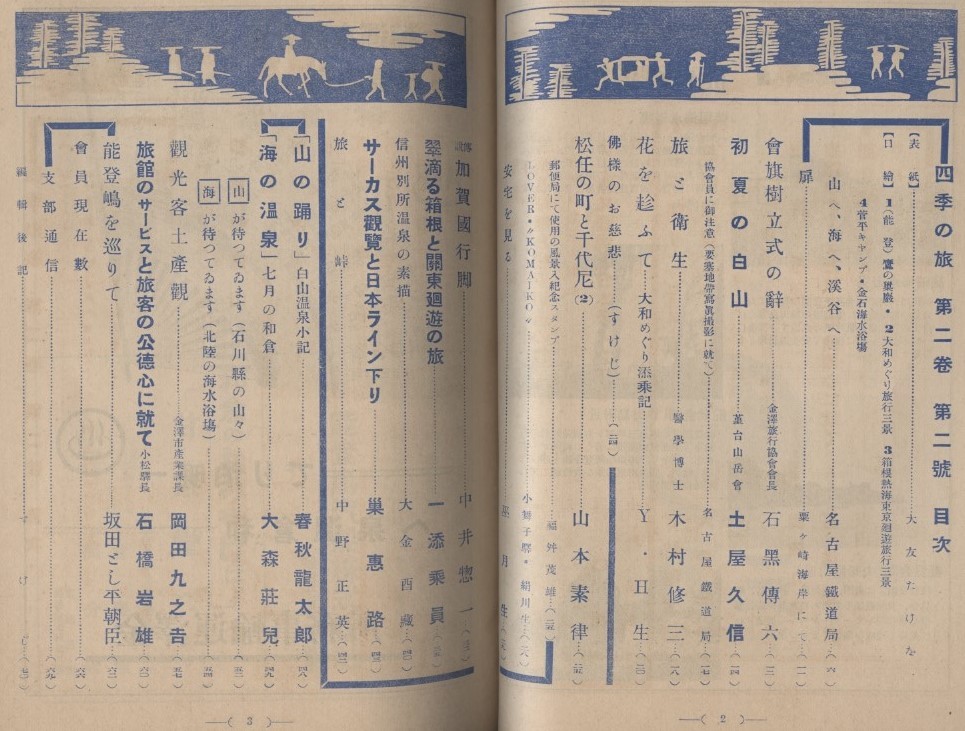 四季の旅 第二卷 第二號 目次
【表紙】 大友たけを
【口繪】 1(能登)鷺の巢巖・2大和めぐり旅行三景 3箱根熱海東京廻遊旅行三景
4菅平キャンプ・金石海水浴場
扉 粟ヶ崎海岸にて (一)
山へ、海へ、溪谷へ 名古屋鐵道局 (六)
會旗樹立式の辭 金澤旅行協會會長 石黑傳六 (三)
初夏の白山 菫台山岳會 土屋久信 (一四)
協會員に御注意(要塞地帶寫眞撮影に就て) 名古屋鐵道局 (一七)
旅と衛生 醫學博士 木村修三 (一八)
花を趁ふて 大和めぐり添乘記 Y・H生 (二〇)
佛樣のお慈悲 (すけじ) (二四)
松任の町と千代尼(2) 山本素律 (二五)
郵便局にて使用の風景入紀念スタンプ 福舛茂雄
LOVER・〃KOMAIKO〃 小舞子驛・絹川生 (二八)
安宅を見る 月生
傳說 加賀國行脚 中井惣一
翠滴る箱根と關東廻遊の旅 一添乘員
信州別所溫泉の素描 大金酉藏 (四〇)
サーカス觀覽と日本ライン下り 巢惠路
旅と峠 中野正英
「山の踊り」白山溫泉小記 春秋龍太郎 (四八)
「海の溫泉」七月の和倉 大森莊兒 (四九)
山が待つてゐます(石川縣の山々) (五二)
海が待つてゐます(北陸の海水浴場) (五四)
觀光客土產觀 金澤市產業課長 岡田九之吉 (五七)
旅館のサービスと旅客の公德心に就て 小松驛長 石橋岩雄 (六〇)
能登嶋を巡りて 坂田とし平朝臣 (六二)
會員現在數 (六六)
支部通信 (六九)
編輯後記 すけじ
(2)
(3)